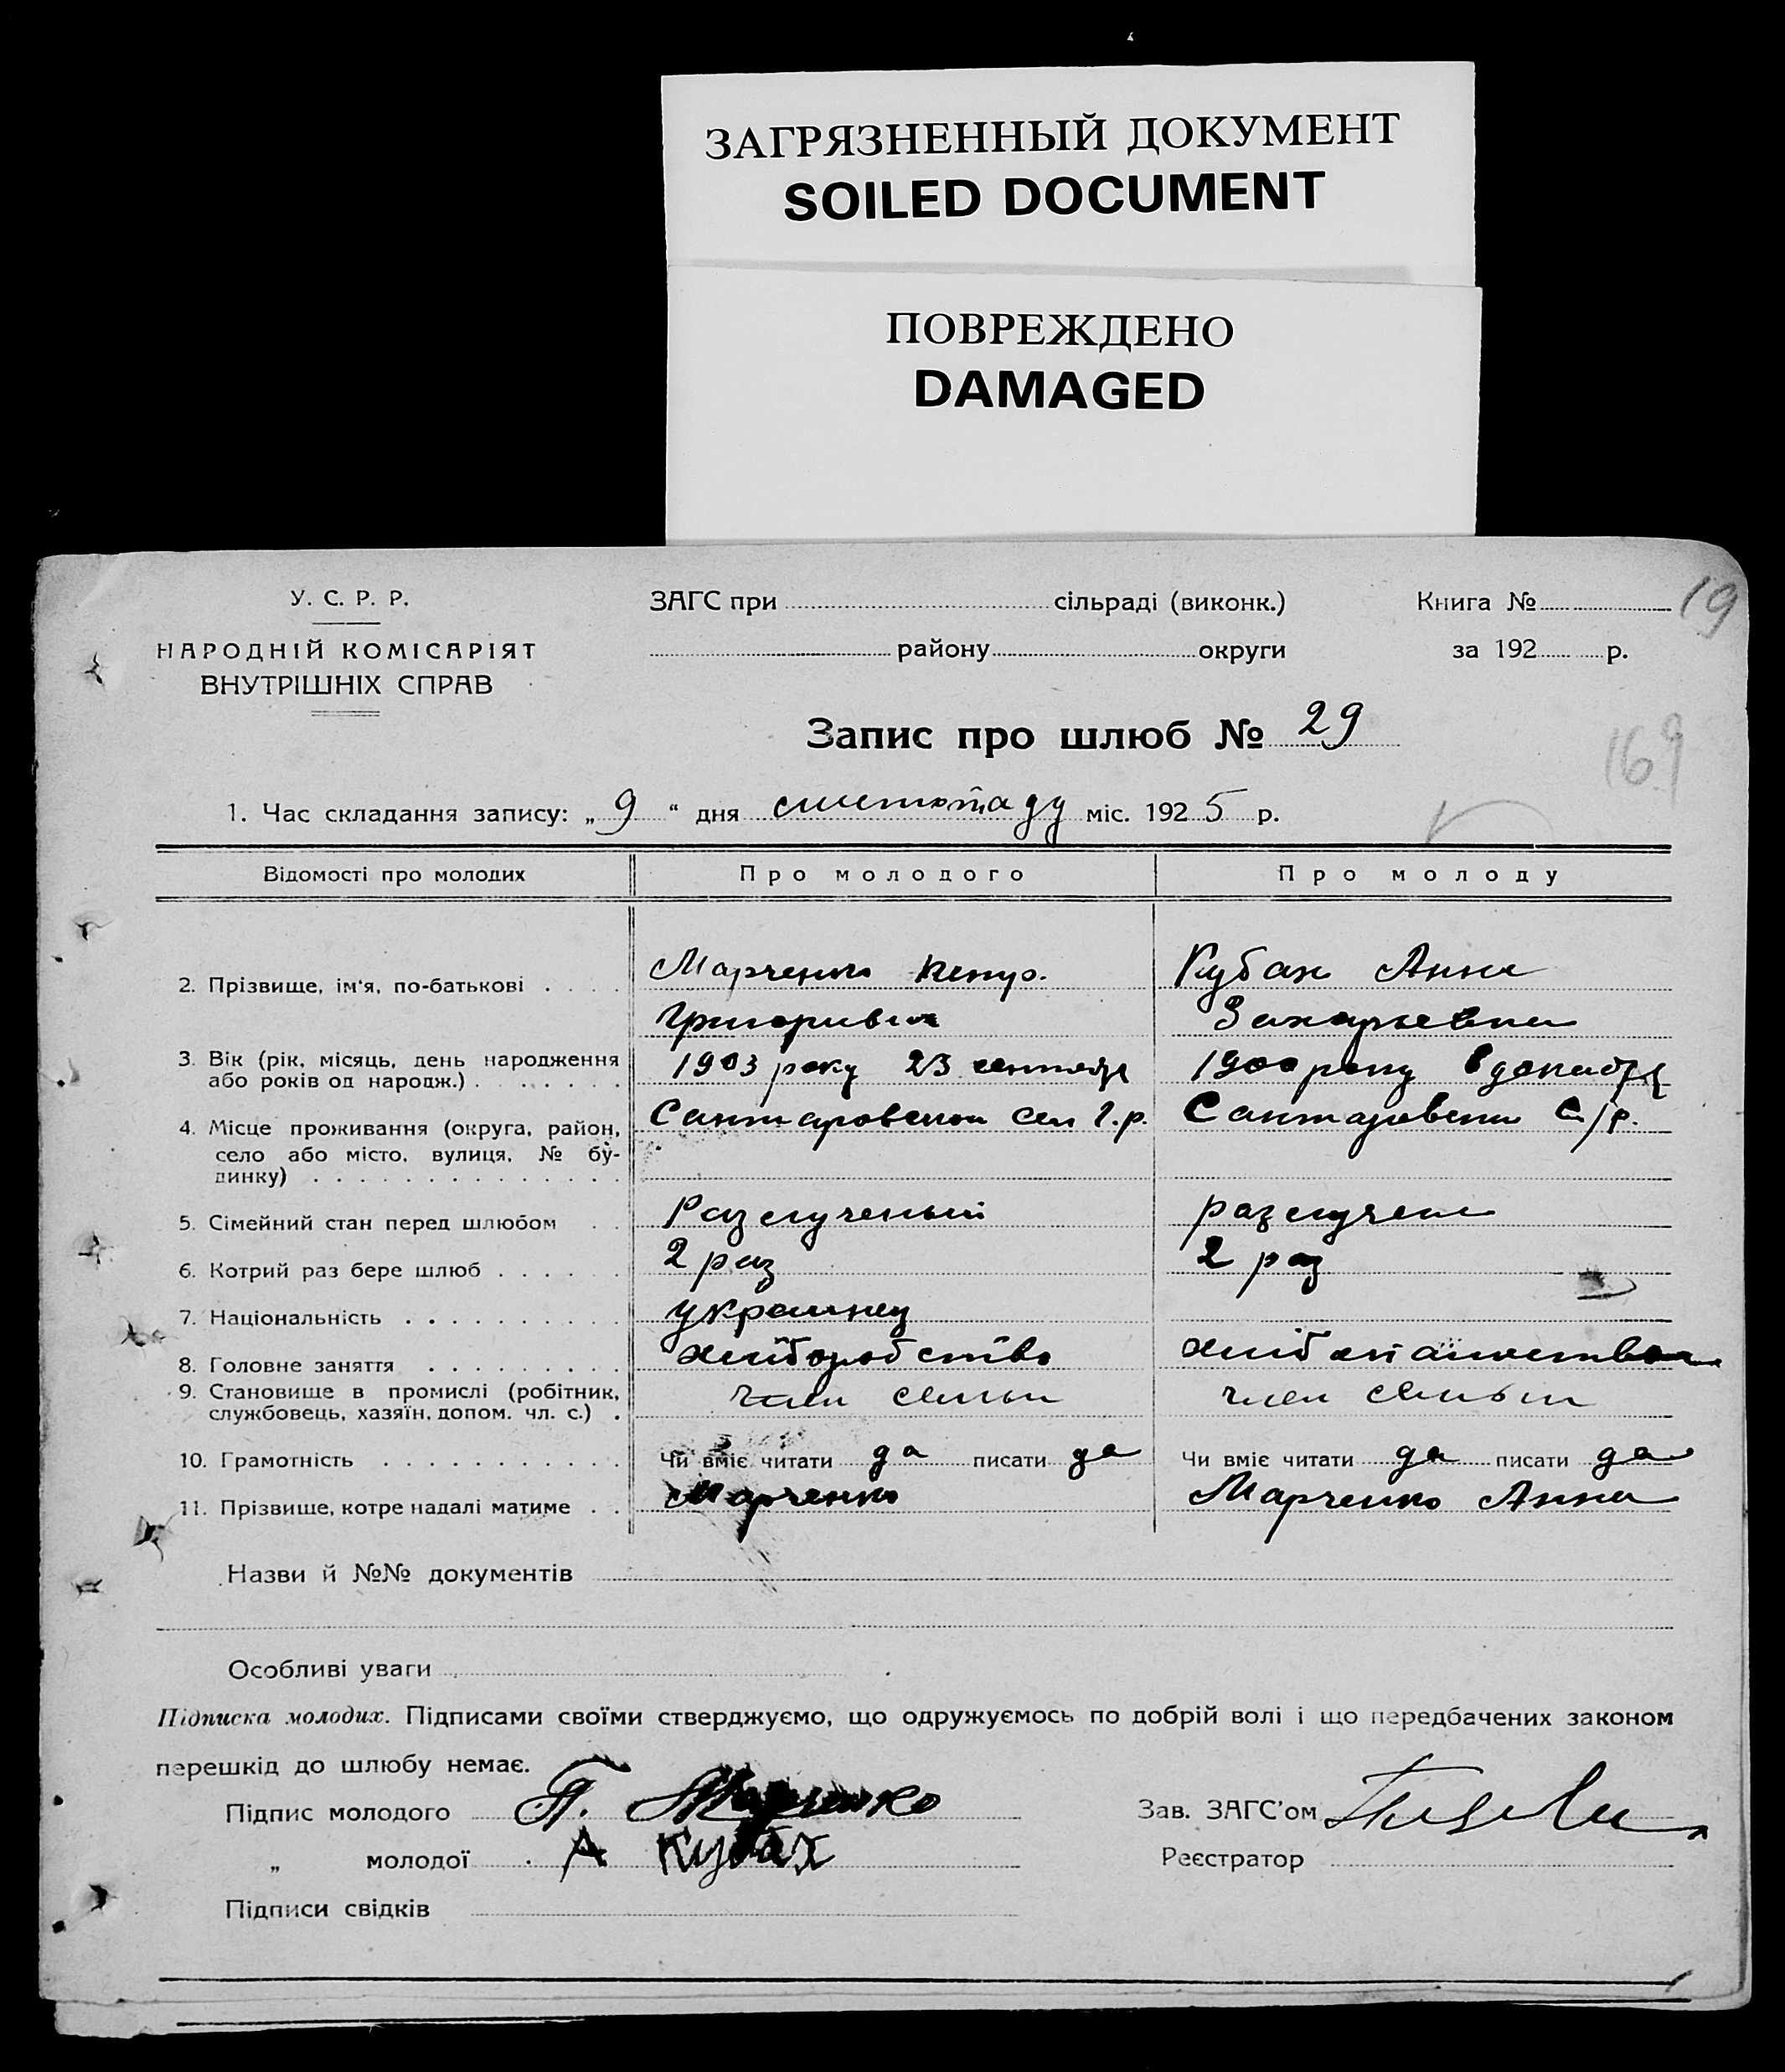 ЗАГРЯЗНЕННЫЙ ДОКУМЕНТ
SOILED DOCUMENT
ПОВРЕЖДЕНО
DAMAGED
У. С. Р. Р.
НАРОДНІЙ КОМІСАРІЯТ
ВНУТРІШНІХ СПРАВ
ЗАГС при сільраді (виконк.)
району округи
Книга №
за 192 р.
19
Запис про шлюб № 29
169
1. Час складання запису: „ 9 “ дня міс. 192 5 р.
Відомості про молодих Про молодого Про молоду
2. Прізвище, ім'я, по-батькові Марченко Петро Кубах Анна
Захарьевна
3. Вік (рік, місяць, день народження 1903 року 23 сентября 1900 року 8 декабря
або років од народж.)
4. Місце проживання (округа, район, С/р.
село або місто, вулиця, № бу-
динку)
5. Сімейний стан перед шлюбом Разлученый разлучена
6. Котрий раз бере шлюб 2 раз 2 раз
7. Національність украинец
8. Головне заняття
9. Становище в промислі (робітник, член семьи член семьи
службовець, хазяїн, допом. чл. с.)
10. Грамотність Чи вміє читати да писати да Чи вміє читати да писати да
11. Прізвище, котре надалі матиме Марченко Марченко Анна
Назви й №№ документів
Особливі уваги
Підписка молодих. Підписами своїми стверджуємо, що одружуємось по добрій волі і що передбачених законом
перешкід до шлюбу немає.
Підпис молодого П. Марченко Зав. ЗАГС'ом
„ молодої А Кубах Реєстратор
Підписи свідків